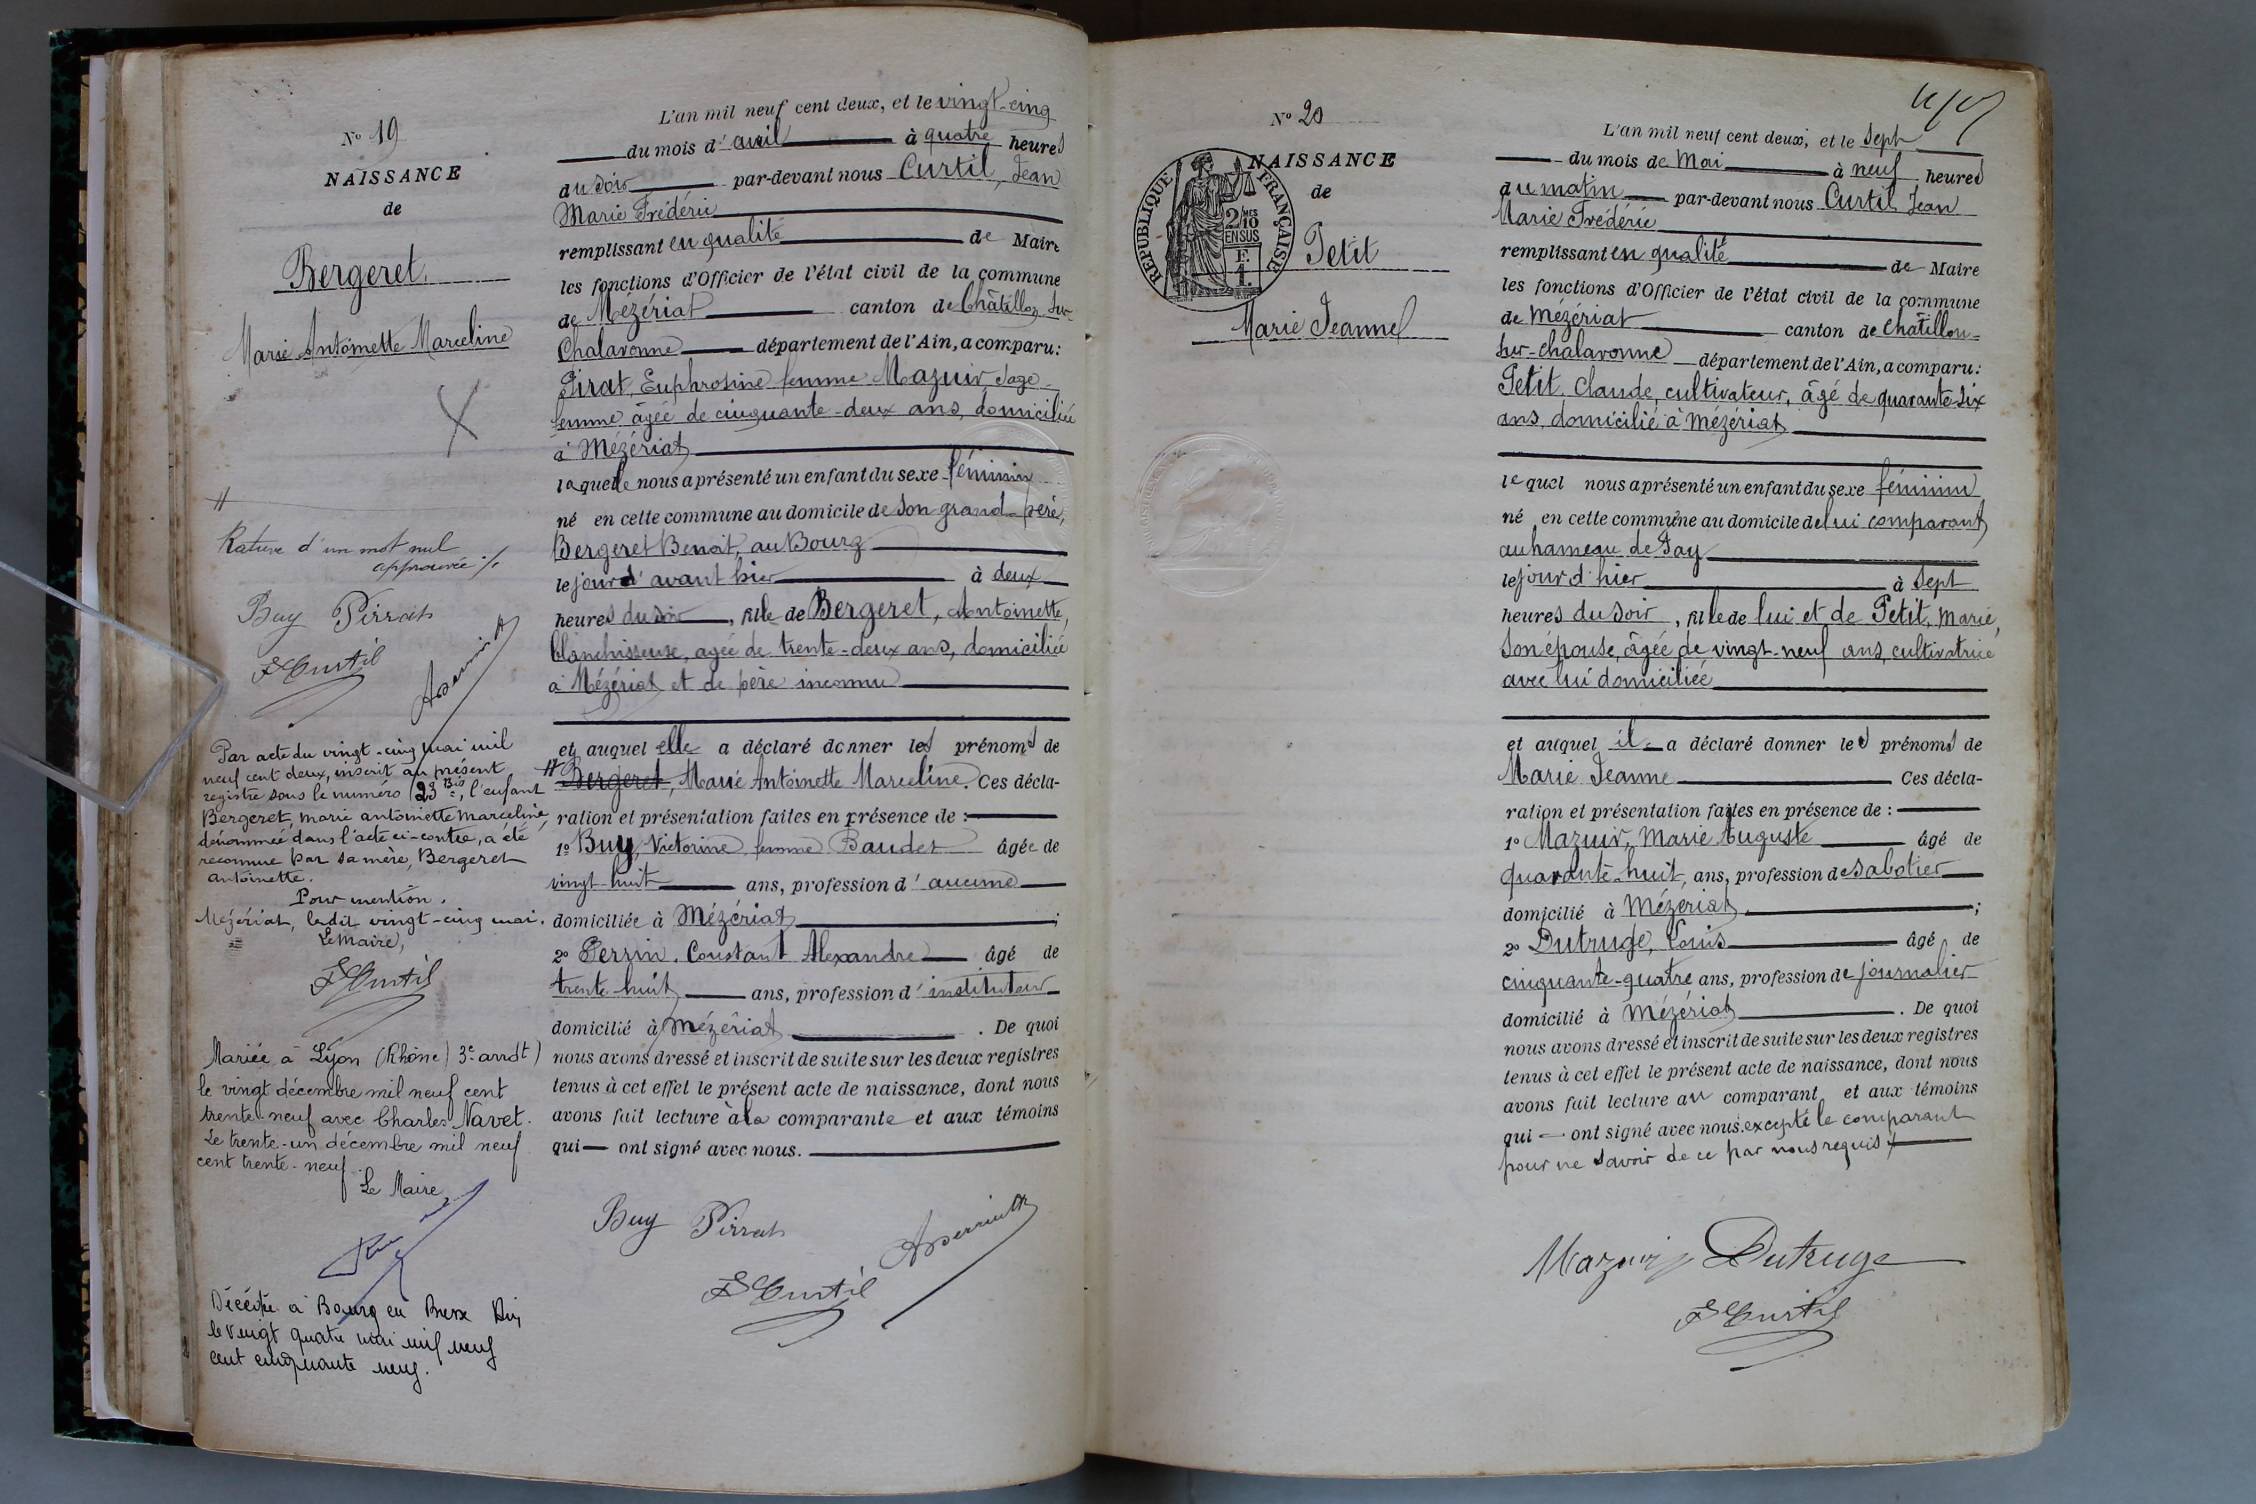 N° 19
NAISSANCE
de
Bergeret.
Marie Antoinette Marceline
Rature d'un mot nul
approuvée
Buy Pirrat
F Curtil
Par acte du vingt-cinq mai mil
neuf cent deux, inscrit au présent
registre sous le numéro 23 Bis, l'enfant
Bergeret, marie antoinette marceline,
dénommée dans l'acte ci-contre, a été
reconnue par sa mère, Bergeret
antoinette.
Pour mention.
Mézériat, ledit vingt-cinq mai.
Le Maire,
F Curtil
Mariée à Lyon (Rhône) 3e arrdt)
le vingt décembre mil neuf cent
trente-neuf avec Charles Navet.
Le trente-un décembre mil neuf
cent trente-neuf.
Le Maire
Décédée à Bourg en Bresse Ain
le vingt quatre mai mil neuf
cent cinquante neuf.
L'an mil neuf cent deux, et le vingt-cinq
du mois d'avril à quatre heures
du soir par-devant nous Curtil, Jean
Marie Frédéric
remplissant en qualité de Maire
les fonctions d'Officier de l'état civil de la commune
de Mézériat canton de Châtillon-sur-
Chalaronne département de l'Ain, a comparu:
Pirat, Euphrosine femme Mazuir, sage-
femme âgée de cinquante-deux ans, domiciliée
à Mézériat
laquelle nous a présenté un enfant du sexe féminin
né en cette commune au domicile de son grand-père,
Bergeret Benoit, au Bourg
le jour d'avant hier à deux
heures du soir, fille de Bergeret, Antoinette,
blanchisseuse, agée de trente-deux ans, domiciliée
à Mézériat et de père inconnu
et auquel elle a déclaré donner les prénoms de
Bergeret, Marie Antoinette Marceline. Ces décla-
ration et présentation faites en présence de :
1° Buy, Victorine femme Baudet âgée de
vingt-huit ans, profession d'aucune
domiciliée à Mézériat ;
2° Perrin, Constant Alexandre âgé de
trente-huit ans, profession d'instituteur
domicilié à Mézériat . De quoi
nous avons dressé et inscrit de suite sur les deux registres
tenus à cet effet le présent acte de naissance, dont nous
avons fait lecture à la comparante et aux témoins
qui ont signé avec nous.
Buy Pirrat
F Curtil
N° 20
NAISSANCE
de
RÉPUBLIQUE FRANÇAISE
2/MES
10
EN SUS
F.
1.
Petit
Marie Jeanne
L'an mil neuf cent deux, et le sept
du mois de Mai à neuf heures
du matin par-devant nous Curtil, Jean
Marie Frédéric
remplissant en qualité de Maire
les fonctions d'Officier de l'état civil de la commune
de Mézériat canton de Châtillon-
sur-chalaronne département de l'Ain, a comparu:
Petit, Claude, cultivateur, âgé de quarante-six
ans, domicilié à Mézériat
lequel nous a présenté un enfant du sexe féminin
né en cette commune au domicile de lui comparant
au hameau de Fay
le jour d'hier à sept
heures du soir, fille de lui et de Petit, Marie,
son épouse, âgée de vingt-neuf ans, cultivatrice
avec lui domiciliée
et auquel il a déclaré donner les prénoms de
Marie Jeanne Ces décla-
ration et présentation faites en présence de :
1° Mazuir, Marie Auguste âgé de
quarante-huit, ans, profession de sabotier
domicilié à Mézériat ;
2° Dutruge, Louis âgé de
cinquante-quatre ans, profession de journalier
domicilié à Mézériat . De quoi
nous avons dressé et inscrit de suite sur les deux registres
tenus à cet effet le présent acte de naissance, dont nous
avons fait lecture au comparant et aux témoins
qui ont signé avec nous excepté le comparant
pour ne savoir de ce par nous requis
Mazuir Dutruge
F Curtil